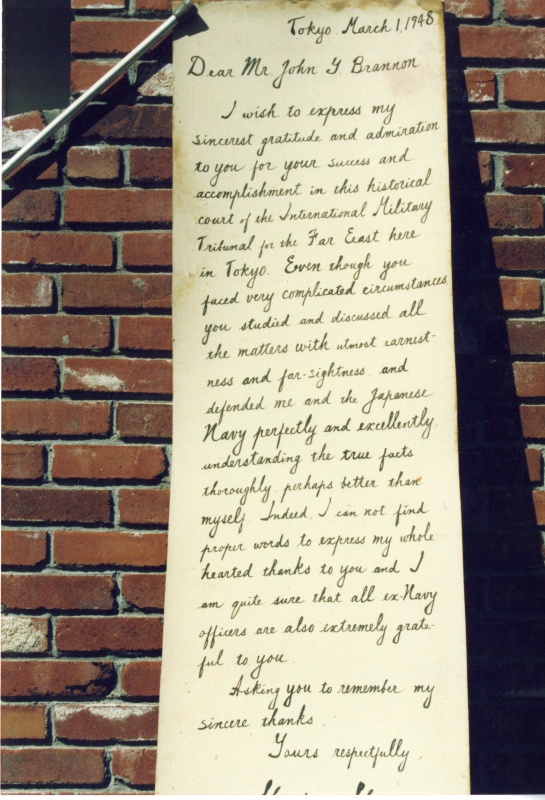 Tokyo. March 1, 1948
Dear Mr. John G. Brannon
I wish to express my
sincerest gratitude and admiration
to you for your success and
accomplishment in this historical
court of the International Military
Tribunal for the Far East here
in Tokyo. Even though you
faced very complicated circumstances
you studied and discussed all
the matters with utmost earnest-
ness and far-sightness and
defended me and the Japanese
Navy perfectly and excellently,
understanding the true facts
thoroughly, perhaps better than
myself. Indeed, I can not find
proper words to express my whole
hearted thanks to you and I
am quite sure that all ex-Navy
officers are also extremely grate-
ful to you.
Asking you to remember my
sincere thanks.
Yours respectfully,